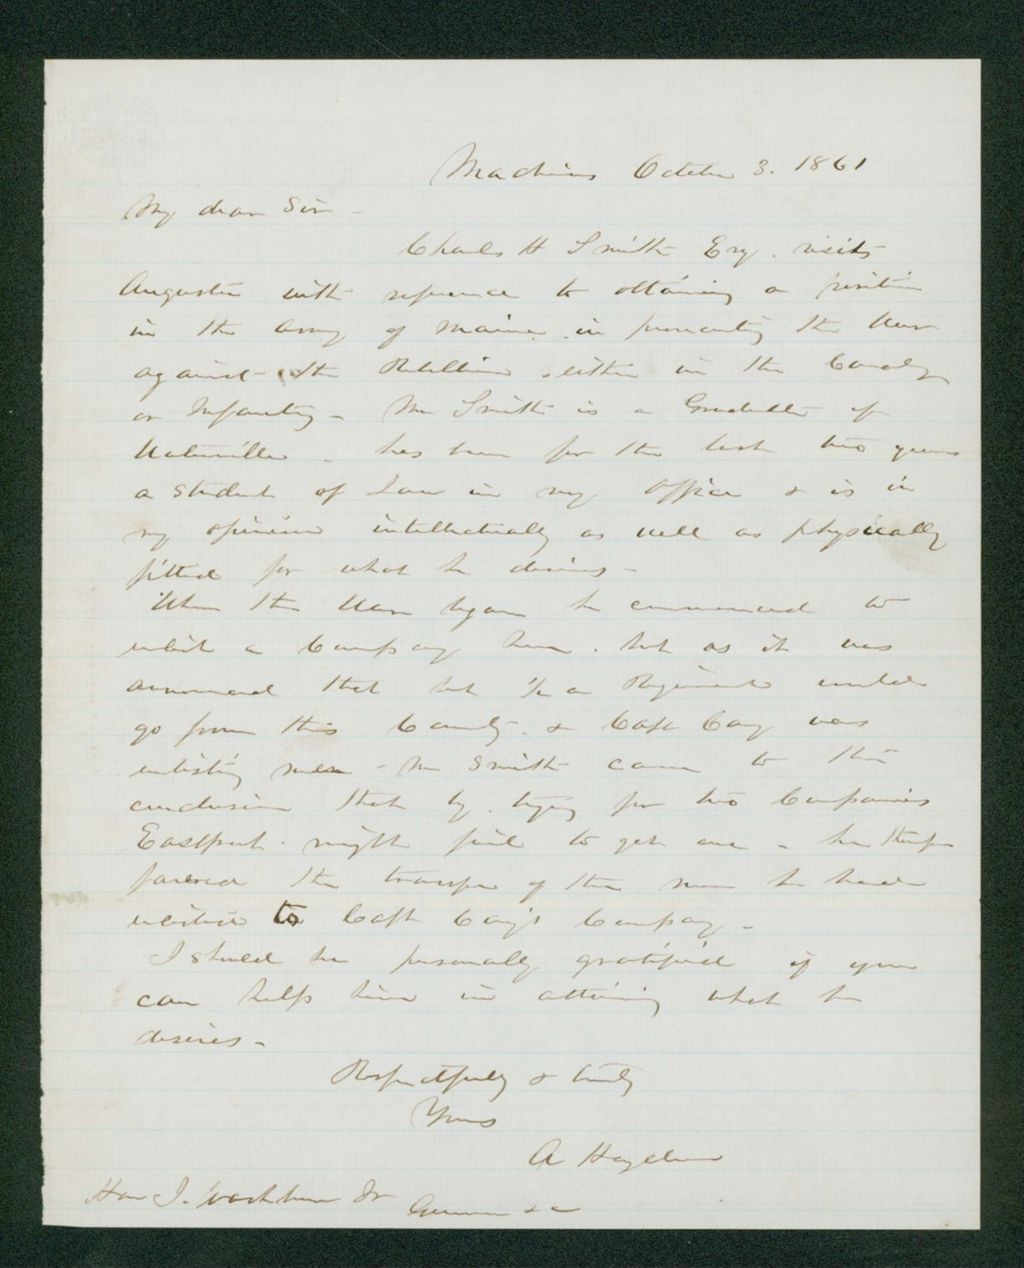 Machias October 3. 1861
My dear Sir -
Charles H Smith Esq. visits
Augusta with reference to obtaining a position
in the army of Maine in prosecuting the War
against the Rebellion, either in the Cavalry
or Infantry - Mr Smith is a Graduate of
Waterville - has been for the last two years
a student of Law in my office & is in
my opinion intellectually as well as physically
fitted for what he desires -
When the War began he commenced to
enlist a Company here. but as it was
announced that but ½ a Regiment would
go from this County. & Capt was
enlisting men - Mr Smith came to the
conclusion that by trying for two Companies
Eastport might fail to get one - he
the transfer of the men he had
enlisted to Capt Company -
I should be personally gratified if you
can help him in attaining what he
desires -
Respectfully & truly
Yours
A Hayden
Hon I. Washburn Jr